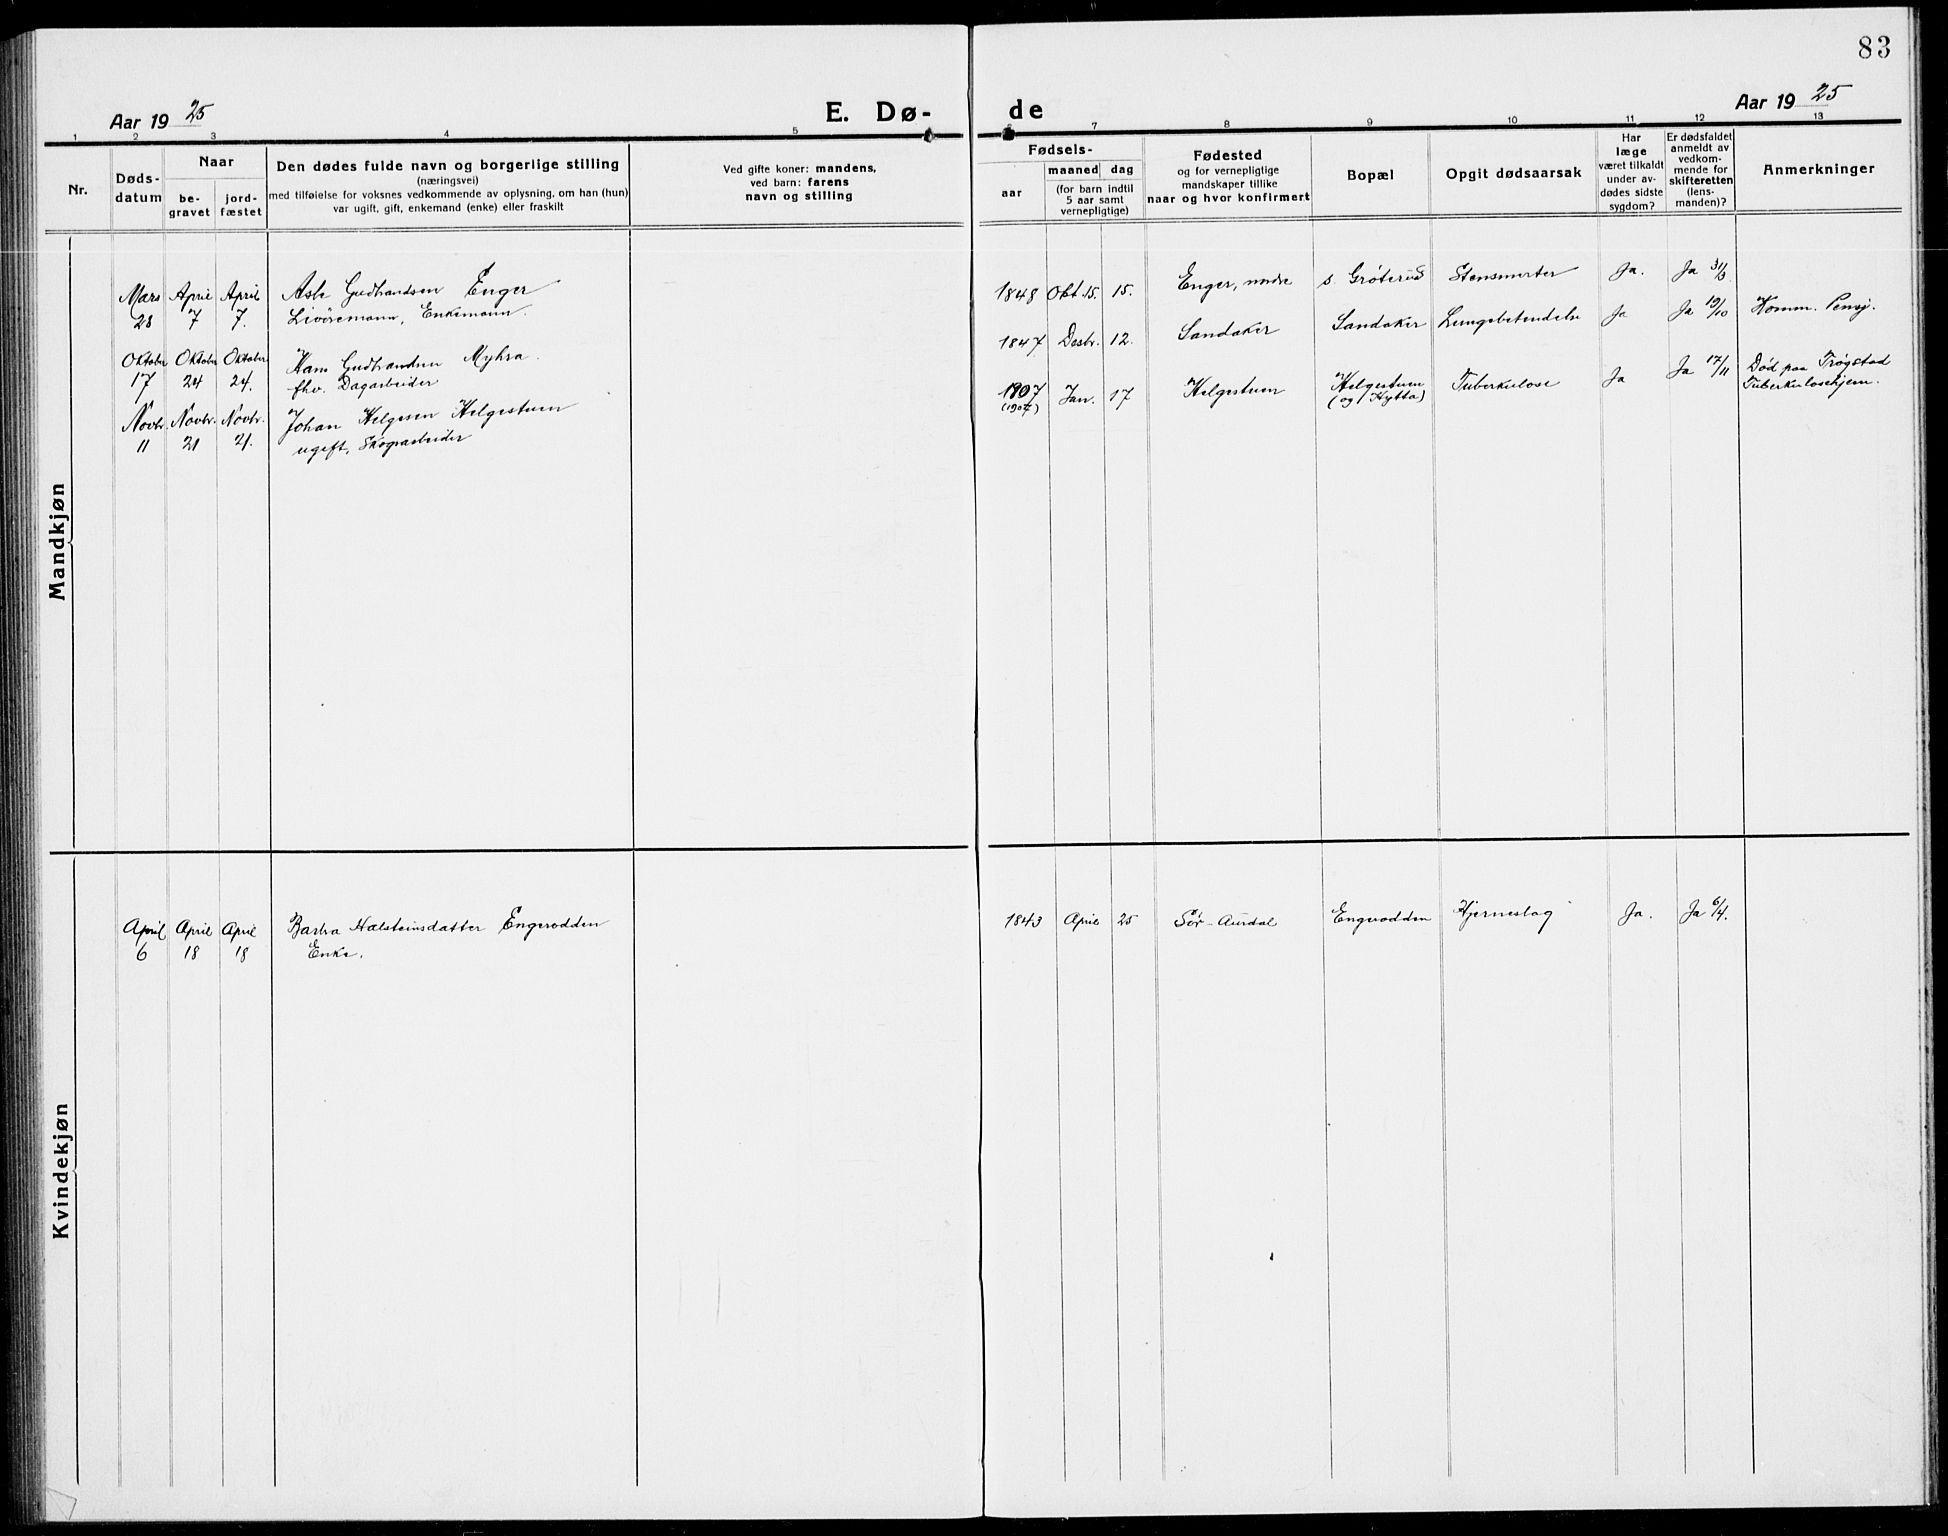 83
Aar 1925
E. Dø-
de
Aar 1925
1 2 3 4 5 6 7 8 9 10 11 12 13
Nr.
Døds-
datum
Naar
be-
gravet
jord-
fæstet
Den dødes fulde navn og borgerlige stilling
(næringsvei)
med tilføielse for voksnes vedkommende av oplysning, om han (hun)
var ugift, gift, enkemand (enke) eller fraskilt
Ved gifte koner: mandens,
ved barn: farens
navn og stilling
Fødsels-
aar
maaned dag
(for barn indtil
5 aar samt
vernepligtige)
Fødested
og for vernepligtige
mandskaper tillike
naar og hvor konfirmert
Bopæl
Opgit dødsaarsak
Har
læge
været tilkaldt
under av-
dødes sidste
sygdom?
Er dødsfaldet
anmeldt av
vedkom-
mende for
skifteretten
(lens-
manden)?
Anmerkninger
Mandkjøn
Mars April April Asle Gudbrandsen Enger
28 7 7. Livöremann, Enkemann.
1848 Okt. 15. 15. Enger, nordre s. Grøterud Stensmerter Ja. Ja 31/3
Oktober Oktober Oktober Hans Gudbrandsen Myhra.
17 24 24. fhv. Dagarbeider
1847 Desbr. 12. Sandaker Sandaker Lungebetendelse Ja Ja 19/10 Komm. Pensj.
Novbr. Novbr. Novbr. Johan Helgesen Helgestuen
11 21 21. ugift, Skogsarbeider
1907 Jan. 17 Helgestuen Helgestuen Tuberkulose Ja Ja 17/11 Død paa Trøgstad
(1907) (og Hytta) Tuberkulosehjem.
Kvindekjøn
April April April Barbra Halsteinsdatter Engerodden
6 18 18 Enke.
1843 April 25 Sør-Aurdal Engerodden Hjerneslag Ja. Ja 6/4.